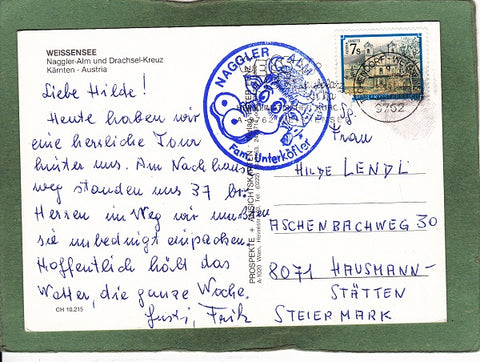 WEISSENSEE
Naggler-Alm und Drachsel-Kreuz
Kärnten - Austria
Liebe Hilde!
Heute haben wir
eine herrliche Tour
hinter uns. Am Nachhaus
weg standen uns 37 
Herren im Weg wir mussten
sie unbedingt einpacken.
Hoffentlich hält das
Wetter, die ganze Woche.
Gusti, Fritz
CH 10.215
PROSPEKTE + ANSICHTSKARTEN
A-1020 Wien,
NAGGLER ALM
Fam. Unterköfler
7s
9762
Frau
HILDE LENDL
ASCHENBACHWEG 30
8071 HAUSMANN-
STÄTTEN
STEIERMARK